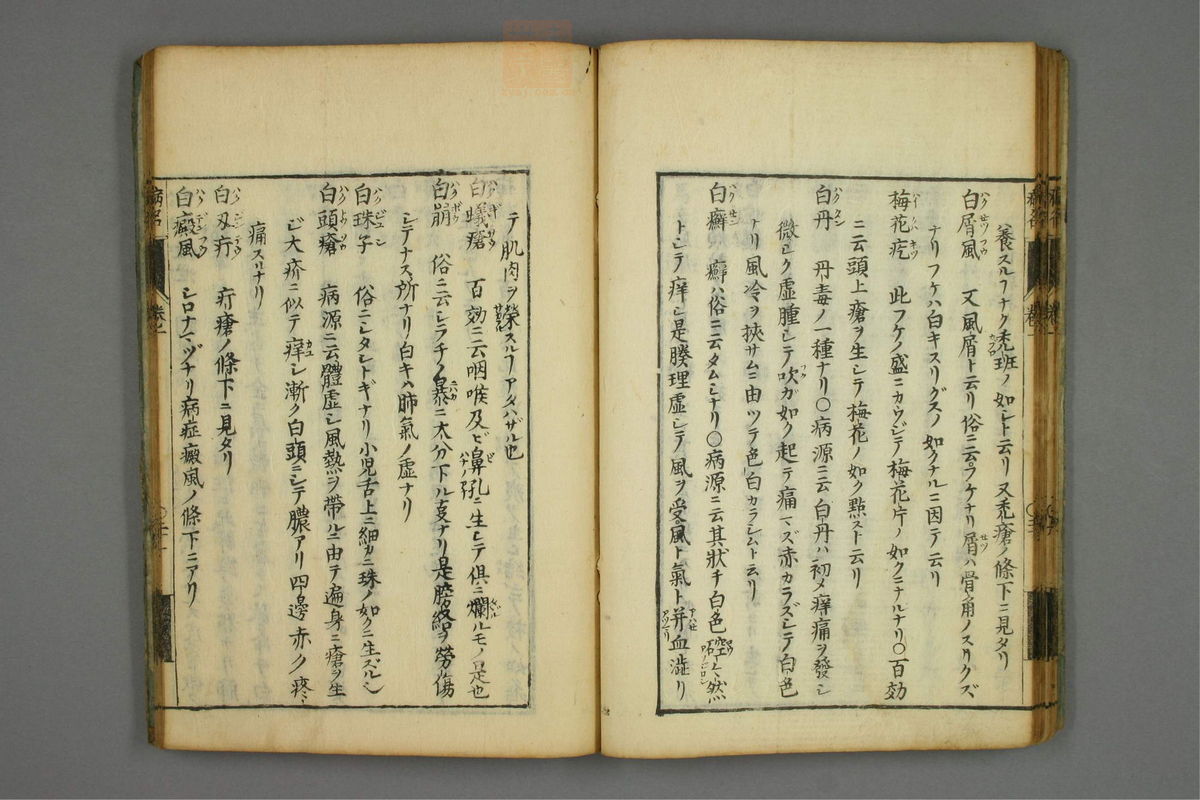 養スルフナク禿班ノ如シト云リ又禿瘡ノ條下ニ見タリ
白屑風 又風屑ト云リ俗ニ云フケナリ屑ハ骨角ノスリクズ
ナリフケハ白キスリグズノ如クナルニ因テ云リ
梅花疙 此フケノ盛ニカウジテ梅花片ノ如クニナルナリ〇百効
ニ云頭上瘡ヲ生シテ梅花ノ如ク點スト云リ
白丹 丹毒ノ一種ナリ〇病源ニ云白丹ハ初メ痒痛ヲ發シ
微シク虚腫シテ吹カ如ク起テ痛マズ赤カラズシテ白色
ナリ風冷ヲ挾サムニ由ツテ色白カラシムト云リ
白癬 癬ハ俗ニ云タムシナリ〇病源ニ云其狀チ白色硿々然
トシテ痒シ是腠理虚シテ風ヲ受風ト氣ト并血澁リ
テ肌肉ヲ榮スルフアタハザル也
白蟻瘡 百効ニ云咽喉及ビ鼻孔ニ生シテ俱ニ爛ルモノ是也
白崩 俗ニ云シラチノ暴ニ大分下ル叓ナリ是膀絡ヲ勞傷
シテナス所ナリ白キハ肺氣ノ虚ナリ
白珠子 俗ニシタトギナリ小児舌上ニ細カニ珠ノ如クニ生ズルシ
白頭瘡 病源ニ云體虚シ風熱ヲ帶ルニ由テ遍身ニ瘡ヲ生
ジ大疥ニ似テ痒シ漸ク白頭ニシテ膿アリ四邊赤ク疼
痛スルナリ
白刄疔 疔瘡ノ條下ニ見タリ
白癜風 シロナマヅナリ病症癜風ノ條下ニアリ
病名 卷一